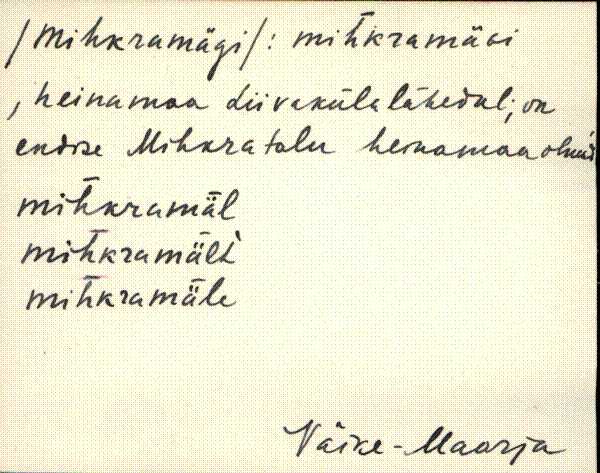 /Mihkramägi/: mihkramäoi
, heinamaa Liivaküla lähedal; on
endise Mihkra talu heinamaa olnud
mihkramäl
mihkramält
mihkramäle
Väike-Maarja